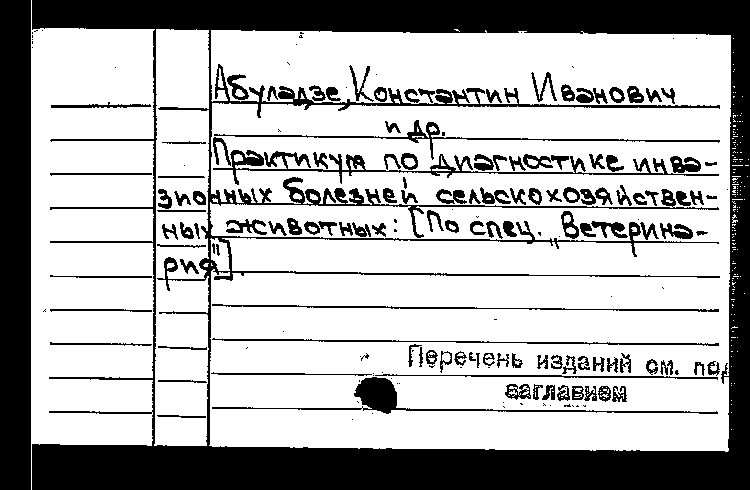 Абуладзе, Константин Иванович
и др.
Практикум по диагностике инва-
зионных болезней сельскохозяйствен-
ных животных: [По спец. „Ветерина-
рия"].
Перечень изданий см. под
заглавием